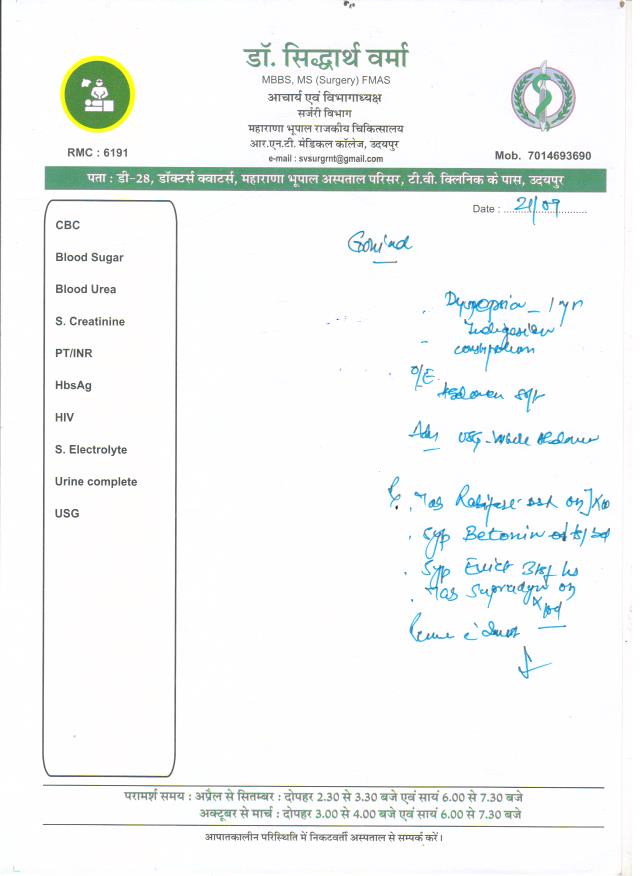 डॉ. सिद्धार्थ वर्मा
MBBS, MS (Surgery) FMAS
आचार्य एवं विभागाध्यक्ष
सर्जरी विभाग
महाराणा भूपाल राजकीय चिकित्सालय
आर.एन.टी. मेडिकल कॉलेज, उदयपुर
e-mail : svsurgrnt@gmail.com
RMC : 6191
Mob. 7014693690
पता : डी-28, डॉक्टर्स क्वाटर्स, महाराणा भूपाल अस्पताल परिसर, टी.वी. क्लिनिक के पास, उदयपुर
Date : 21/09
CBC
Blood Sugar
Blood Urea
S. Creatinine
PT/INR
HbsAg
HIV
S. Electrolyte
Urine complete
USG
Govind
1 yr
Indigestion
constipation
O/E
Adv USG - Whole Abdomen
Tab
Syp Betonin
Syp
Tab Supradyn
परामर्श समय : अप्रैल से सितम्बर : दोपहर 2.30 से 3.30 बजे एवं सायं 6.00 से 7.30 बजे
अक्टूबर से मार्च : दोपहर 3.00 से 4.00 बजे एवं सायं 6.00 से 7.30 बजे
आपातकालीन परिस्थिति में निकटवर्ती अस्पताल से सम्पर्क करें।